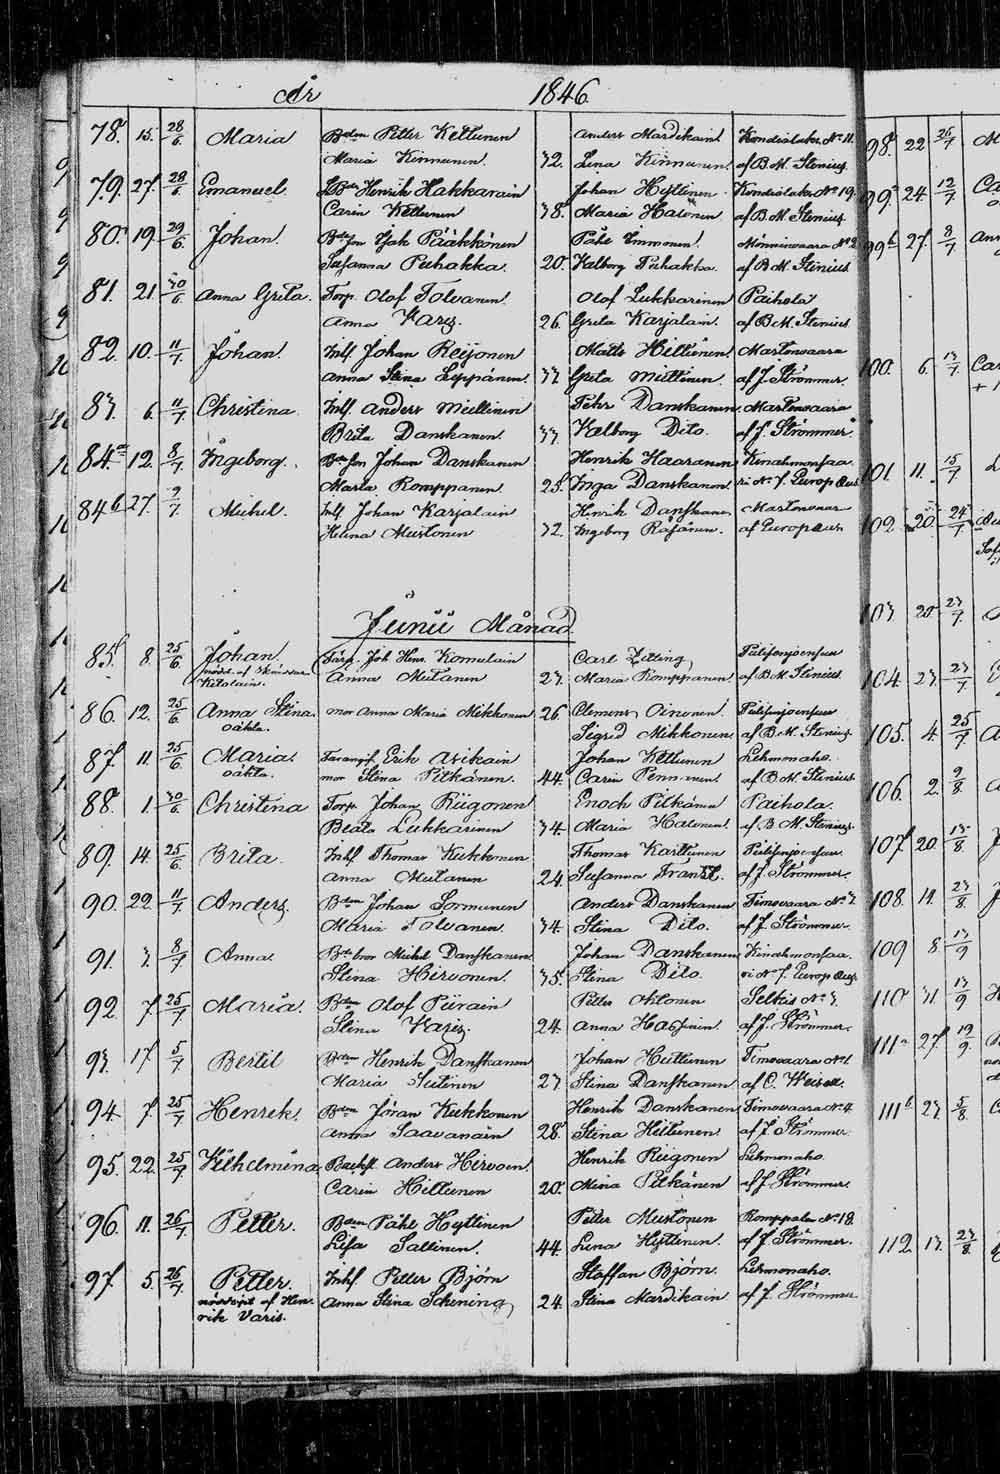 År 1846
78. 15. 28/6. Maria Bdem Petter Kettunen Anders Mardikain Kondiolaks No 11.
Maria Kinnunen. 32. Lena Kinnunen af B. M. Stenius
79. 27. 28/6. Emanuel Henrik Hakkarain Johan Hyttinen Kondiolaks No 19.
Carin Kettunen 38. Maria Halonen af B. M. Stenius
80. 19. 29/6. Johan. Pääkkönen Påhl Immonen. Mönninvaara No 2
Susanna Puhakka. 20. Valborg Puhakka. af B. M. Stenius
81. 21. 30/6. Anna Greta. Torp. Olof Tolvanen. Olof Lukkarinen Paihola
Anna Varis. 26. Greta Karjalain. af B. M. Stenius
82. 10. 11/7. Johan. Inh. Johan Reijonen Matts Hiltunen. Martonvaara
Anna Stina Leppänen. 33. Greta Miettinen. af J. Strömmer.
83. 6. 11/7. Christina Inh. Anders Miettinen Pehr Danskanen. Martonvaara
Brita Danskanen. 33. Valborg Dito. af J. Strömmer.
84a 12. 8/7. Ingeborg. Johan Danskanen Henrik Haaranen
Maria Romppanen. 25. Inga Danskanen. No 7. Europæus
84b 27. 9/7. Michel. Inh. Johan Karjalain Henrik Danskanen Martonvaar
Helena Mustonen 32. Ingeborg Räsänen. af Europæus
Junii Månad
85. 8. 25/6. Johan. Joh. Henr. Komulain Carl Zitting
nöddöpt af
Anna Mutanen 23. Maria Romppanen. af B. M. Stenius
86. 12. 25/6. Anna Stina. mor Anna Maria Mikkonen 26. Clemens Oinonen.
oäkta. Sigrid Mikkonen. af B. M. Stenius
87. 11. 25/6. Maria. Erik Asikain Johan Kettunen Lehmonaho.
oäkta. mor Stina Pitkänen. 44. Carin Pennanen. af B. M. Stenius
88. 1. 30/6. Christina Torp. Johan Riigonen Enoch Pitkänen Paihola.
Beata Lukkarinen 34. Maria Halonen. af B. M. Stenius.
89. 14. 25/6. Brita. Inh. Thomas Kukkonen Thomas Karttunen
Anna Mutanen 24. Susanna Frantz. af J. Strömmer.
90. 22. 11/7. Anders. Bdem Johan Sormunen Anders Danskanen Timovaara No 3.
Maria Tolvanen. 34. Stina Dito. af J. Strömmer.
91. 3. 8/7. Anna. Michel Danskanen Johan Danskanen
Stina Hirvonen. 35. Stina Dito. No 7. Europæus
92. 7. 25/7. Maria. Bdem Olof Piirain Petter Ahlonen Selkis No 3.
Stina Varis. 24. Anna Hassinen. af J. Strömmer.
93. 17 5/7. Bertil Bdem Henrik Danskanen Johan Huttunen Timovaara No 1.
Maria Sutinen 23 Stina Danskanen af
94. 7. 25/7. Henrik. Bdem Jöran Kukkonen Henrik Danskanen Timovaara No 4
Anna Saavanain 28. Stina Hiltunen. af J. Strömmer.
95. 22. 25/7. Vilhelmina Backst. Anders Hirvon. Henrik Riigonen Lehmonaho.
Carin Hiltunen 20. Mina Pitkänen af J. Strömmer.
96. 11. 26/7. Petter. Bdem Påhl Hyttinen Petter Mustonen Romppala No 18.
Lisa Sallinen. 44. Lena Hyttinen. af J. Strömmer.
97. 5. 26/7. Petter. Inh. Petter Björn Staffan Björn. Lehmonaho.
nöddöpt af Hen- Anna Stina Schening 24. Stina Mardikain af J. Strömmer
rik Varis.
98. 22 26/7
99a 24. 12/7.
99b 27. 8/7
100. 6. 13/7.
101. 11. 15/7
102. 20. 24/7.
103. 20 23/7.
104. 23. 23/7
105. 4. 25/7
106. 2. 9/8.
107 20. 13/8.
108. 14. 23/8.
109 8 13/9
110 31. 13/9
111a 27 19/9.
111b 23. 5/8
112. 13. 23/8.